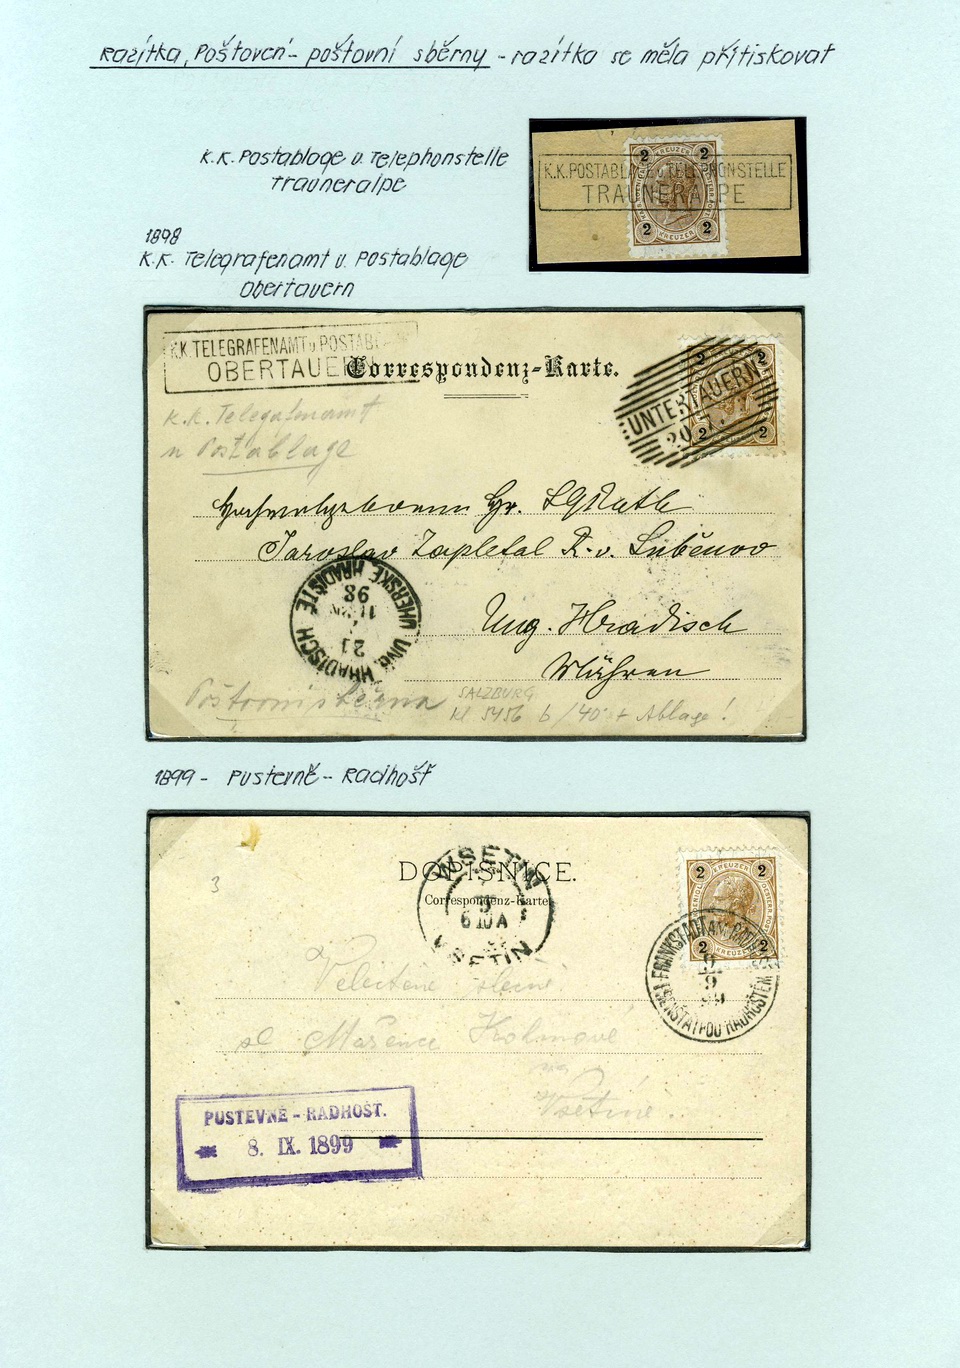 Razítka, Poštoven - poštovní sběrny - razítka se měla přitiskovat
K.K. Postablage u. Telephonstelle
Trauneralpe
2 KREUZER 2
K.K. POSTABLAGE u. TELEPHONSTELLE
TRAUNERALPE
2 KREUZER 2
1898
K.K. Telegrafenamt u. Postablage
Obertauern
K.K. TELEGRAFENAMT u. POSTABL
OBERTAUERN
Correspondenz-Karte.
2 2
UNTERTAUERN
20
2 2
k.k. Telegrafenamt
u Postablage
Hr.
Jaroslav Zapletal R. v. Luběnov
UHERSKÉ HRADIŠTĚ
98
21
UNG. HRADISCH
Ung. Hradisch
Mähren
Poštovní sběrna
SALZBURG
Kl 5456 b /40 + Ablage!
1899 - Pustevně - Radhošť
3
WSETIN
DOPISNICE.
Correspondenz-Karte
6 10 A
VSETÍN
2 KREUZER 2
2 KREUZER 2
FRANKSTADT AM RADHOSCHT
9
9
99
FRENŠTÁT POD RADHOŠTĚM
Velectěné slečně
sl Mařence
na
Vsetíně.
PUSTEVNĚ - RADHOŠT.
8. IX. 1899